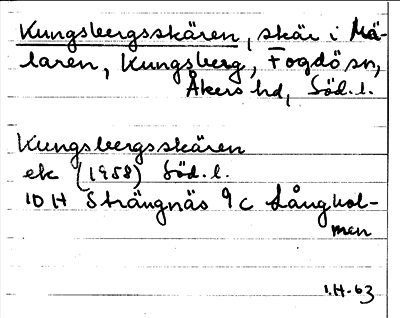 Kungsbergsskären, skär i Mä-
laren, Kungsberg, Fogdö sn,
Åkers hd, Söd. l.
Kungsbergsskären
ek (1958) Söd. l.
10 H Strängnäs 9c Långhol-
men
1.H-63